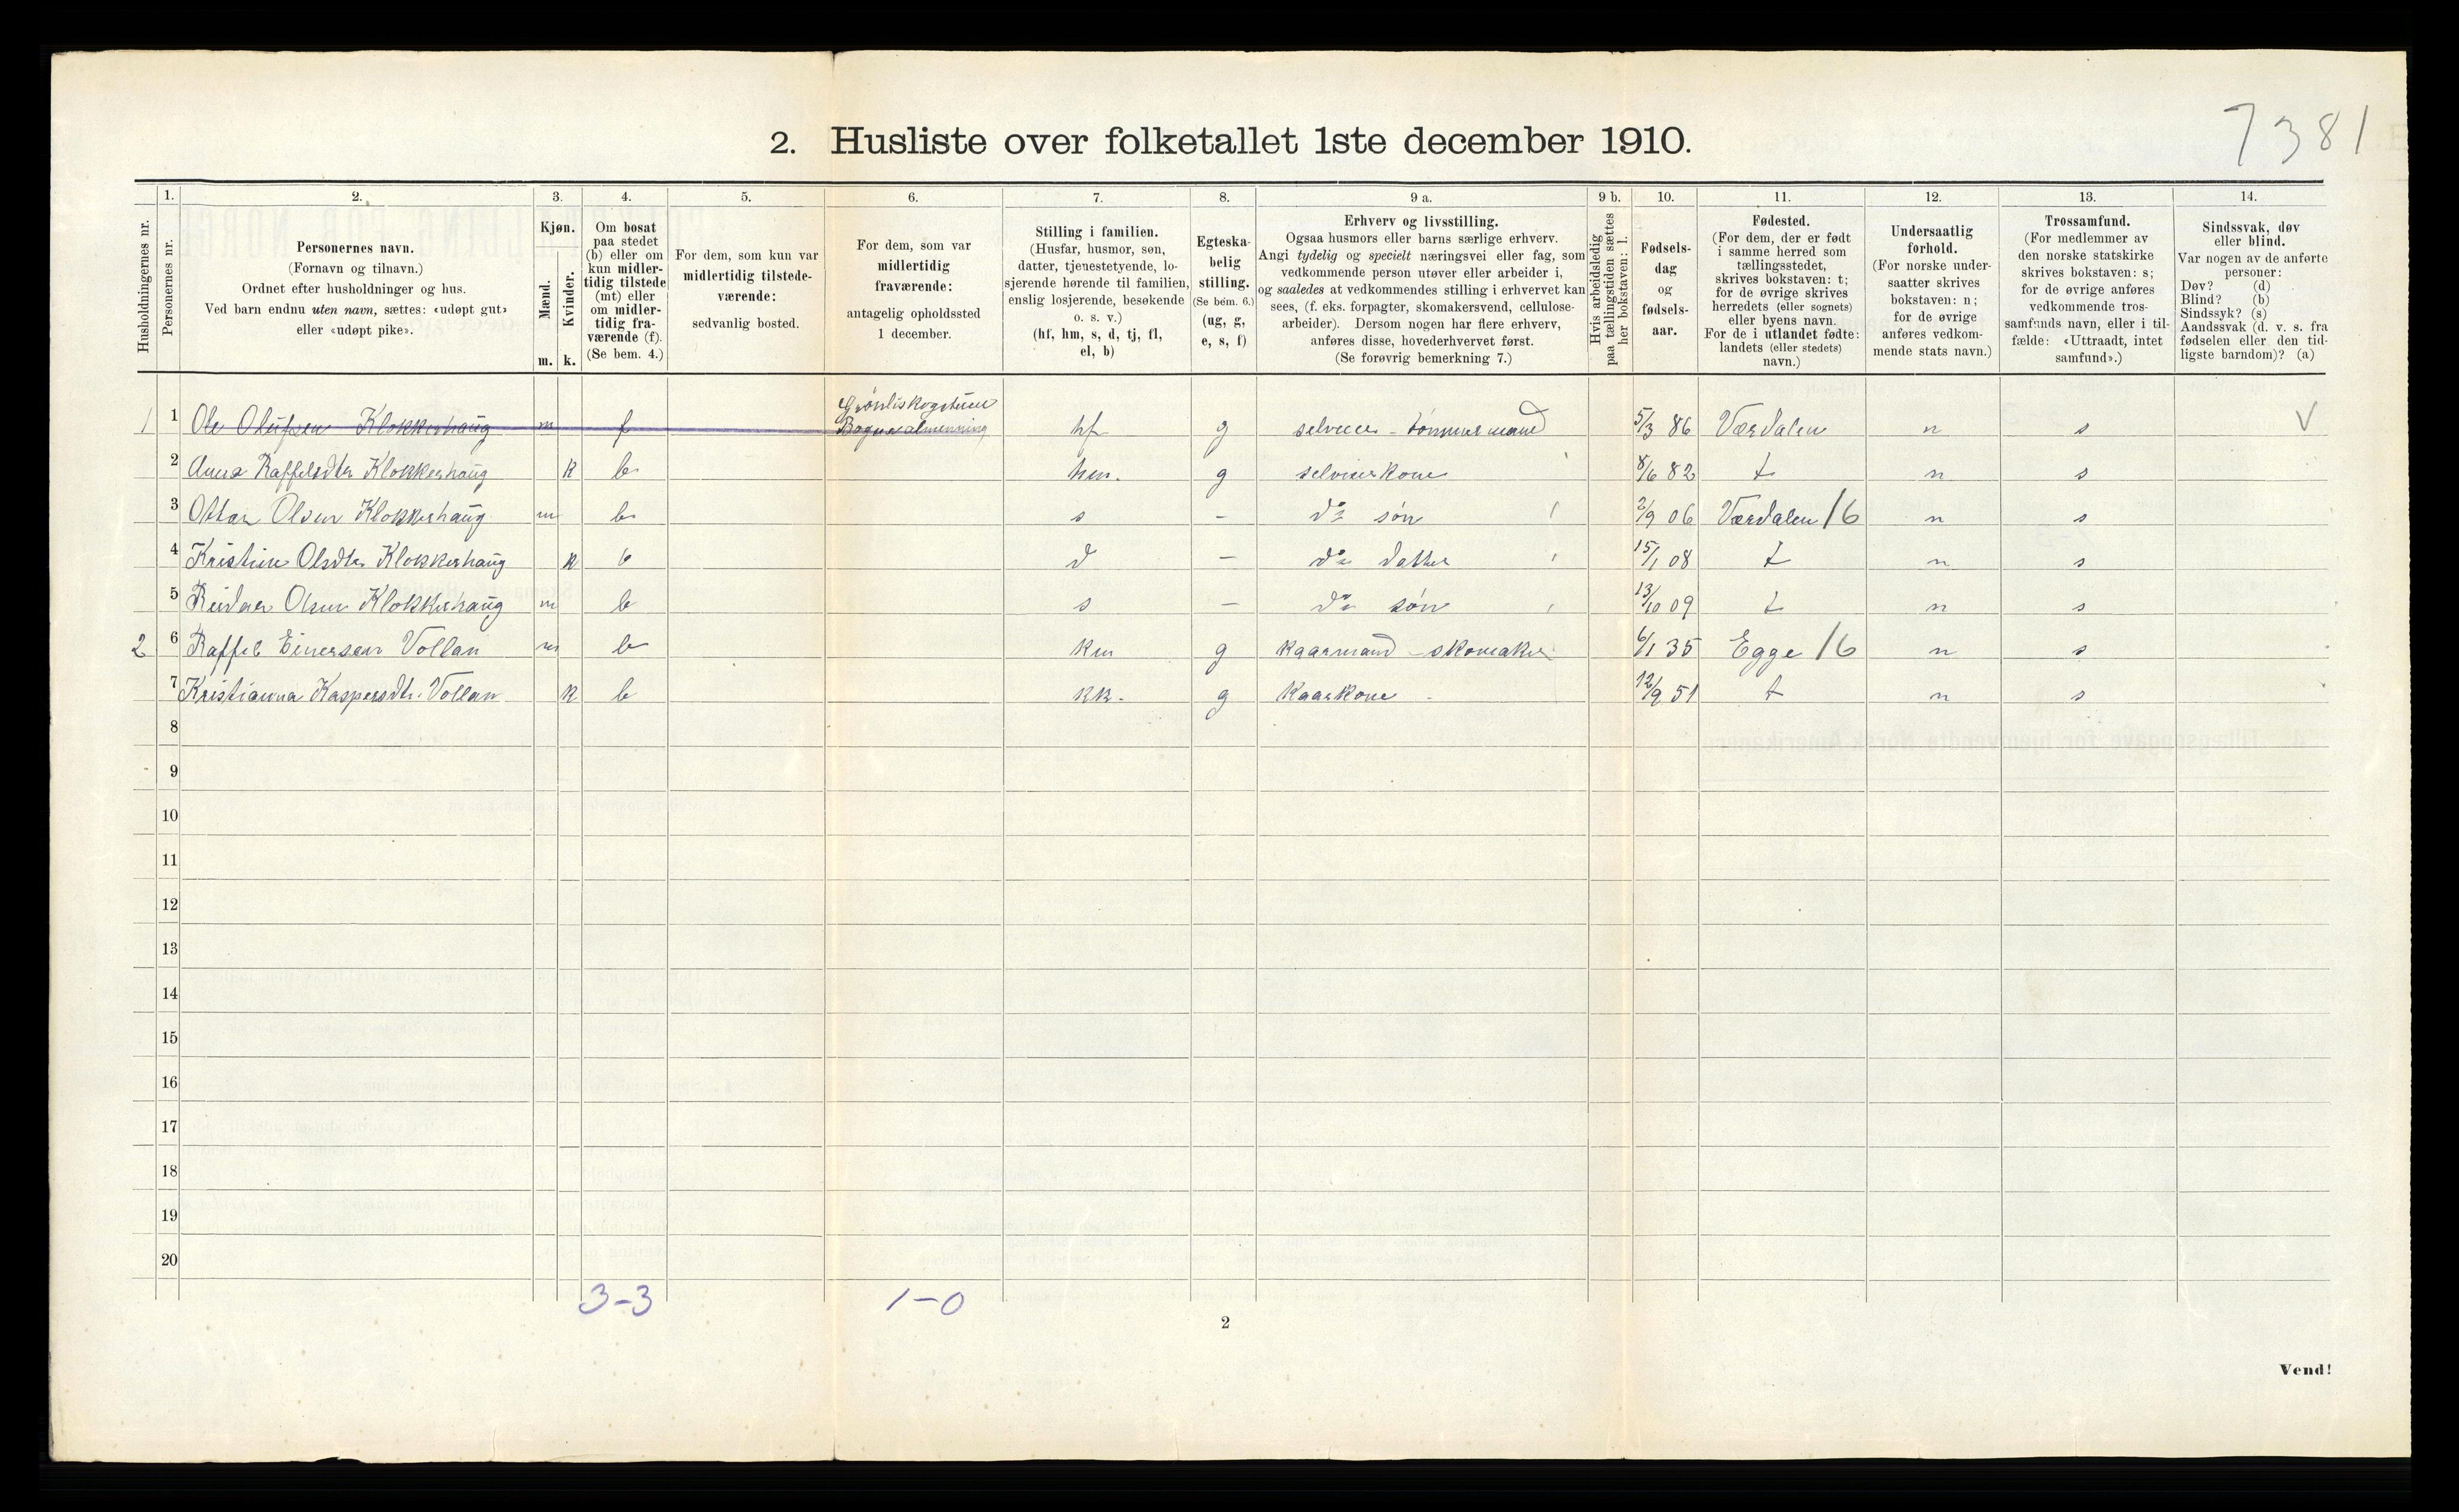 7381
2. Husliste over folketallet 1ste december 1910.
Husholdningernes nr.
1.
Personernes nr.
2.
Personernes navn.
(Fornavn og tilnavn.)
Ordnet efter husholdninger og hus.
Ved barn endnu uten navn, sættes: «udøpt gut»
eller «udøpt pike».
3.
Kjøn.
Mænd.
Kvinder.
m. k.
4.
Om bosat
paa stedet
(b) eller om
kun midler-
tidig tilstede
(mt) eller
om midler-
tidig fra-
værende (f).
(Se bem. 4.)
5.
For dem, som kun var
midlertidig tilstede-
værende:
sedvanlig bosted.
6.
For dem, som var
midlertidig
fraværende:
antagelig opholdssted
1 december.
7.
Stilling i familien.
(Husfar, husmor, søn,
datter, tjenestetyende, lo-
sjerende hørende til familien,
enslig losjerende, besøkende
o. s. v.)
(hf, hm, s, d, tj, fl,
el, b)
8.
Egteska-
belig
stilling.
(Se bem. 6.)
(ug, g,
e, s, f)
9 a.
Erhverv og livsstilling.
Ogsaa husmors eller barns særlige erhverv.
Angi tydelig og specielt næringsvei eller fag, som
vedkommende person utøver eller arbeider i,
og saaledes at vedkommendes stilling i erhvervet kan
sees, (f. eks. forpagter, skomakersvend, cellulose-
arbeider). Dersom nogen har flere erhverv,
anføres disse, hovederhvervet først.
(Se forøvrig bemerkning 7.)
9 b.
Hvis arbeidsledig
paa tællingstiden sættes
her bokstaven: l.
10.
Fødsels-
dag
og
fødsels-
aar.
11.
Fødested.
(For dem, der er født
i samme herred som
tællingsstedet,
skrives bokstaven: t;
for de øvrige skrives
herredets (eller sognets)
eller byens navn.
For de i utlandet fødte:
landets (eller stedets)
navn.)
12.
Undersaatlig
forhold.
(For norske under-
saatter skrives
bokstaven: n;
for de øvrige
anføres vedkom-
mende stats navn.)
13.
Trossamfund.
(For medlemmer av
den norske statskirke
skrives bokstaven: s;
for de øvrige anføres
vedkommende tros-
samfunds navn, eller i til-
fælde: «Uttraadt, intet
samfund».)
14.
Sindssvak, døv
eller blind.
Var nogen av de anførte
personer:
Døv? (d)
Blind? (b)
Sindssyk? (s)
Aandssvak (d. v. s. fra
fødselen eller den tid-
ligste barndom)? (a)
1 1 Ole Olufsen Klokkerhaug m f hf g selveier - tømmermand 5/3 86 Værdalen n s V
2 Anna Raffelsdtr Klokkerhaug k b hm. g selveierkone 8/6 82 t n s
3 Ottar Olsen Klokkerhaug m b s - do søn 2/9 06 Værdalen 16 n s
4 Kristine Olsdtr Klokkerhaug k b d - do datter 15/1 08 t n s
5 Reidar Olsen Klokkerhaug m b s - do søn 13/10 09 t n s
2 6 Raffel Einersen Vollan m b km g kaarmand - skomaker 6/1 35 Egge 16 n s
7 Kristianna Kaspersdtr. Vollan k b kk. g Kaarkone 12/9 51 t n s
8
9
10
11
12
13
14
15
16
17
18
19
20
3-3 1-0
2
Vend!